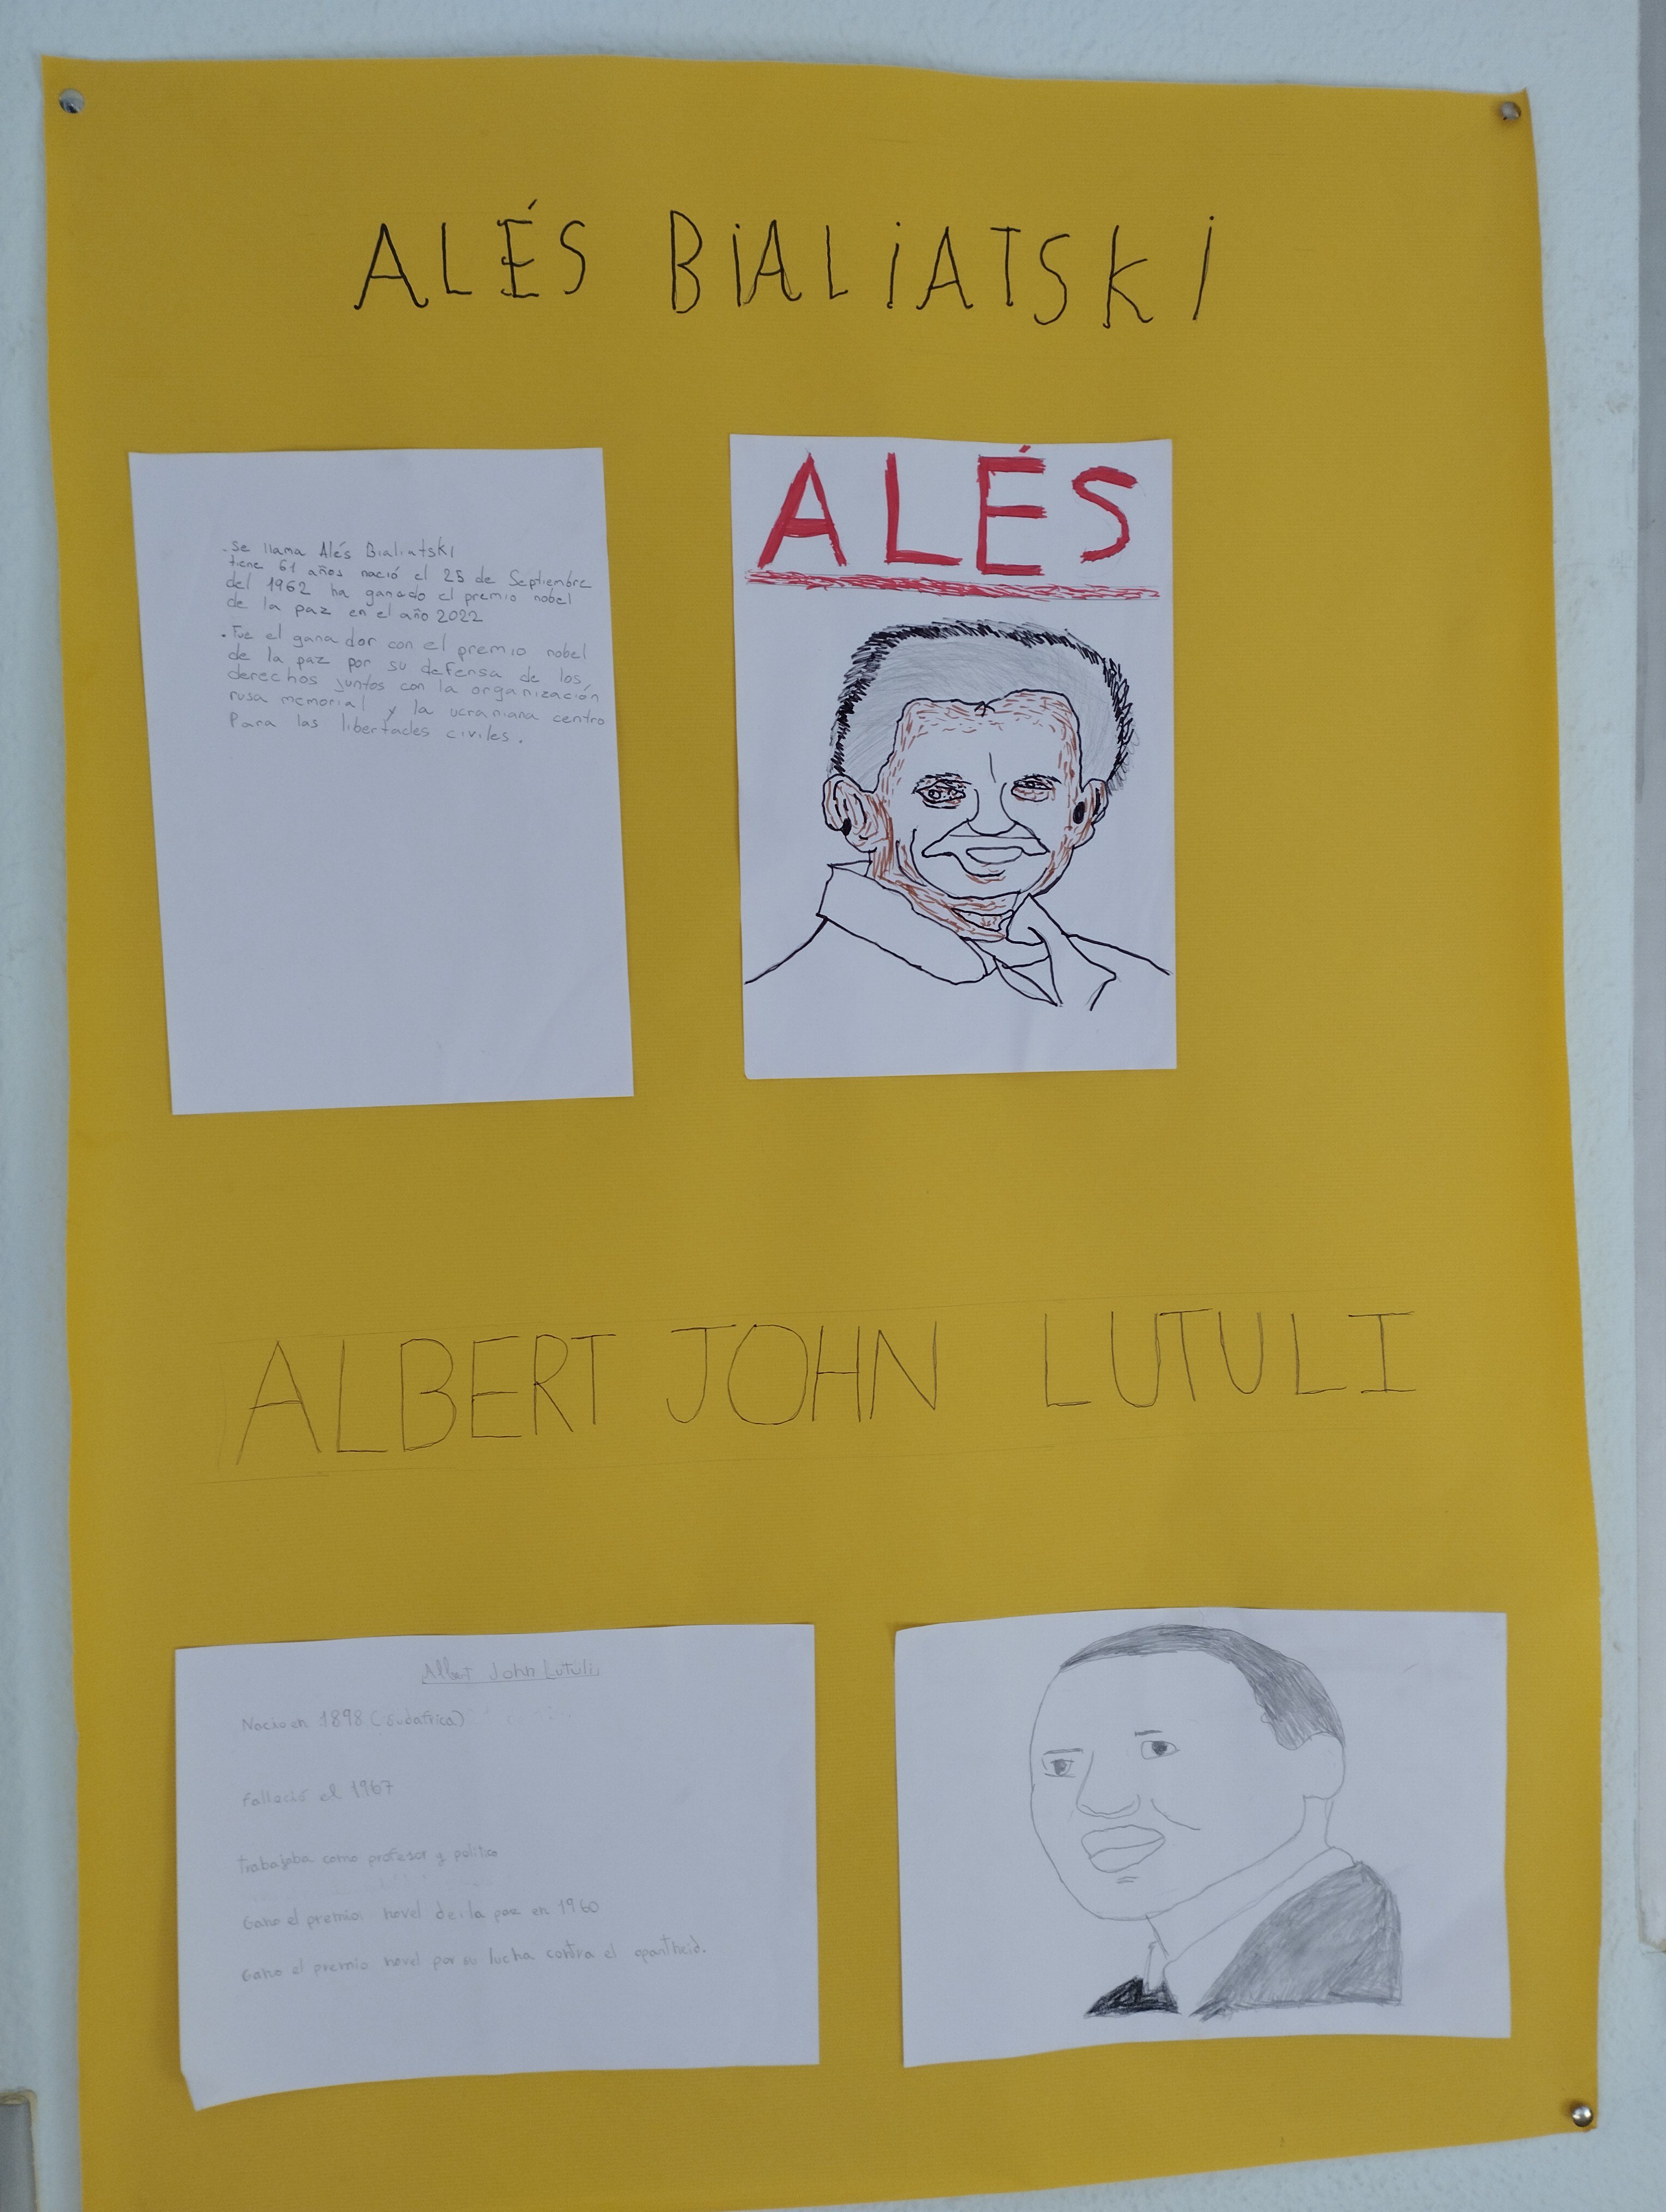 ALÉS BIALIATSKI
. Se llama Alés Bialiatski
tiene 61 años nació el 25 de Septiembre
del 1962 ha ganado el premio nobel
de la paz en el año 2022
. Fue el ganador con el premio nobel
de la paz por su defensa de los
derechos juntos con la organización
rusa memorial y la ucraniana centro
Para las libertades civiles.
ALÉS
ALBERT JOHN LUTULI
Albert John Lutuli
Nacio en 1898 (Sudafrica)
Falleció el 1967
trabajaba como profesor y politico
Gano el premio novel de la paz en 1960
Gano el premio novel por su lucha contra el apartheid.